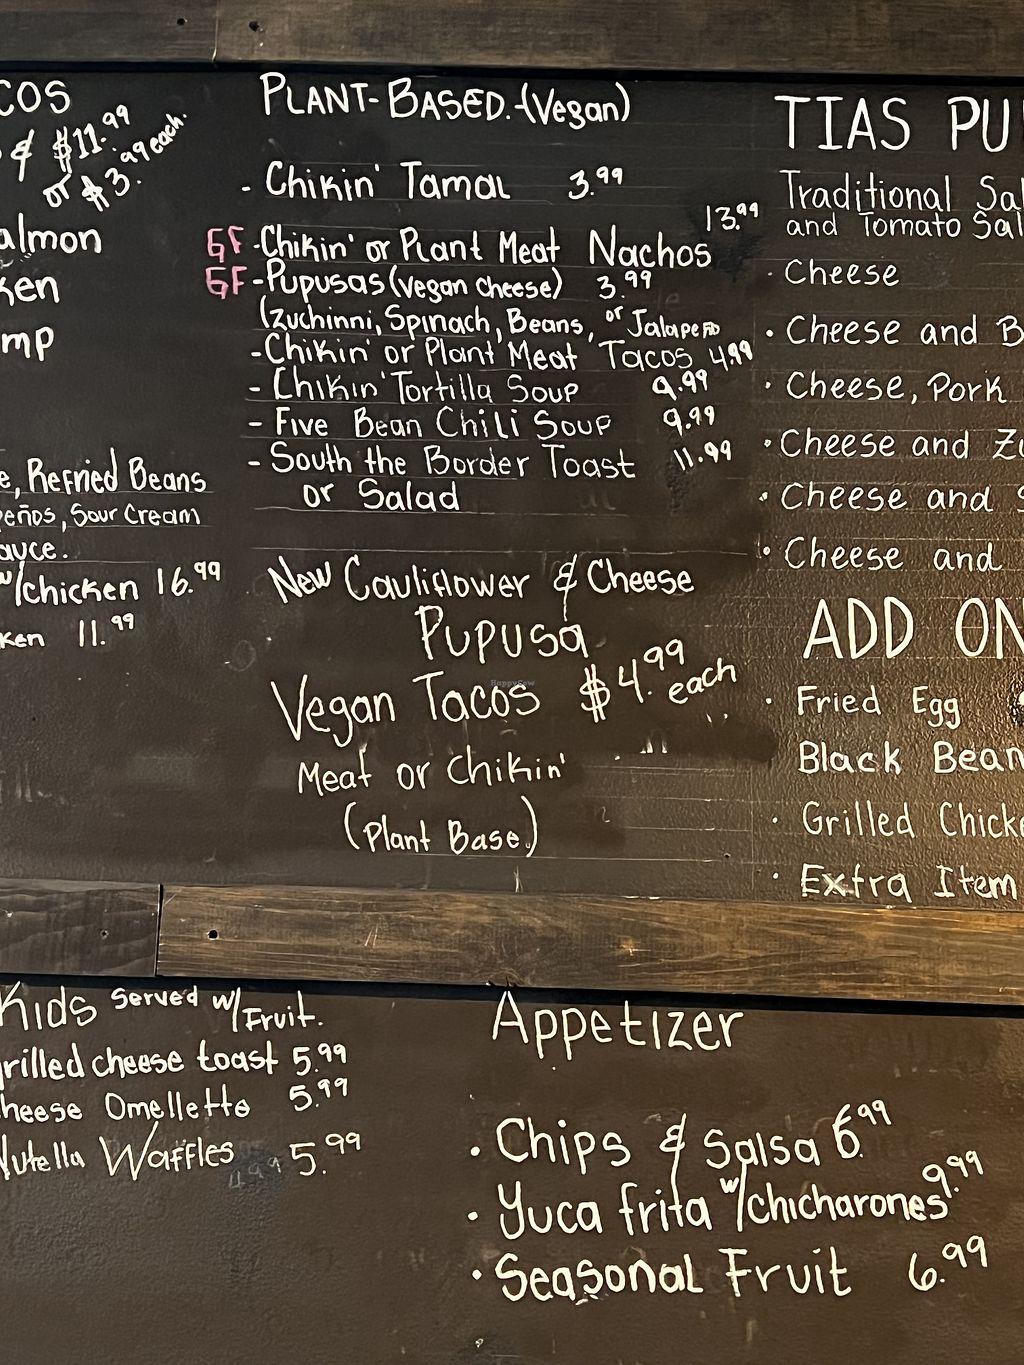 COS
& $11.99
or $3.99 each.
almon
ken
mp
e, Refried Beans
peños, Sour Cream
auce.
w/chicken 16.99
ken 11.99
PLANT-BASED.(Vegan)
- Chikin' Tamal 3.99
13.99
GF -Chikin' or Plant Meat Nachos
GF -Pupusas (vegan cheese) 3.99
(Zuchinni, Spinach, Beans, or Jalapeño
-Chikin' or Plant Meat Tacos 4.99
- Chikin' Tortilla Soup 9.99
- Five Bean Chili Soup 9.99
- South the Border Toast 11.99
or Salad
New Cauliflower & Cheese
Pupusa
Vegan Tacos $4.99 each
Meat or Chikin'
(Plant Base.)
HappyCow
TIAS PU
Traditional Sal
and Tomato Sal
· Cheese
· Cheese and B
· Cheese, Pork
· Cheese and Zu
· Cheese and S
· Cheese and
ADD ON
· Fried Egg
Black Bean
· Grilled Chick
· Extra Item
Kids Served w/Fruit.
rilled cheese toast 5.99
heese Omellette 5.99
Nutella Waffles 4.99 5.99
Appetizer
· Chips & Salsa 6.99
· Yuca frita w/chicharones 9.99
· Seasonal Fruit 6.99